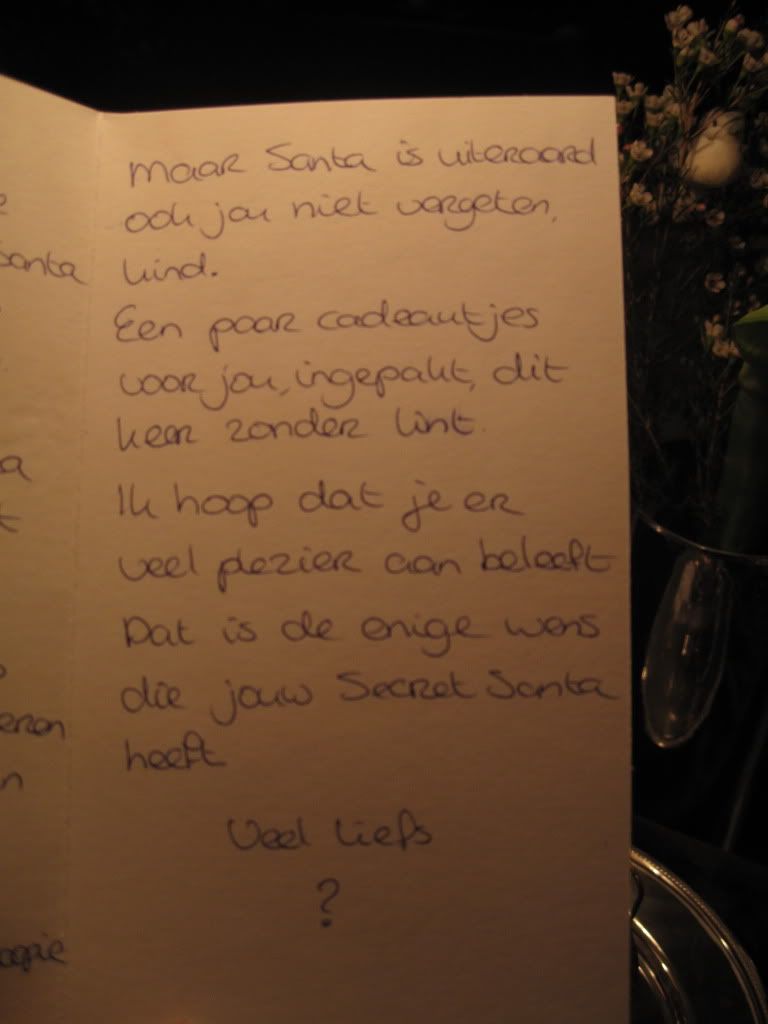 Santa
eren
n
maar Santa is uiteraard
ook jou niet vergeten,
kind.
Een paar cadeautjes
voor jou, ingepakt, dit
keer zonder lint.
Ik hoop dat je er
veel plezier aan beleeft
Dat is de enige wens
die jouw Secret Santa
heeft
Veel liefs
?